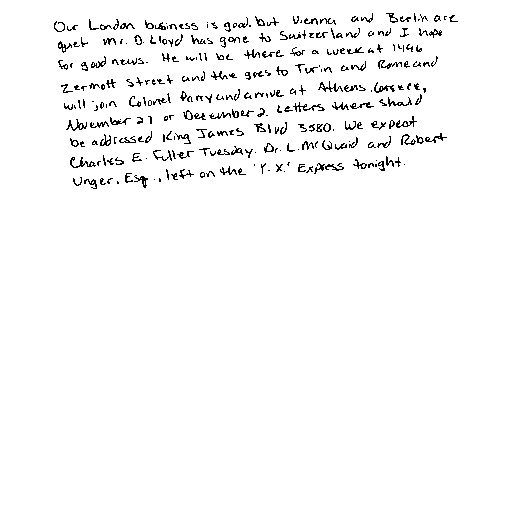 Our London business is good, but Vienna and Berlin are
quiet. Mr. D. Lloyd has gone to Switzerland and I hope
for good news. He will be there for a week at 1496
Zermott Street and the goes to Turin and Rome and
will join Colonel Parry and arrive at Athens, Greece,
November 27 or December 2. Letters there should
be addressed King James Blvd 3580. We expect
Charles E. Fuller Tuesday. Dr. L. McQuaid and Robert
Unger, Esq., left on the 'Y. X.' Express tonight.